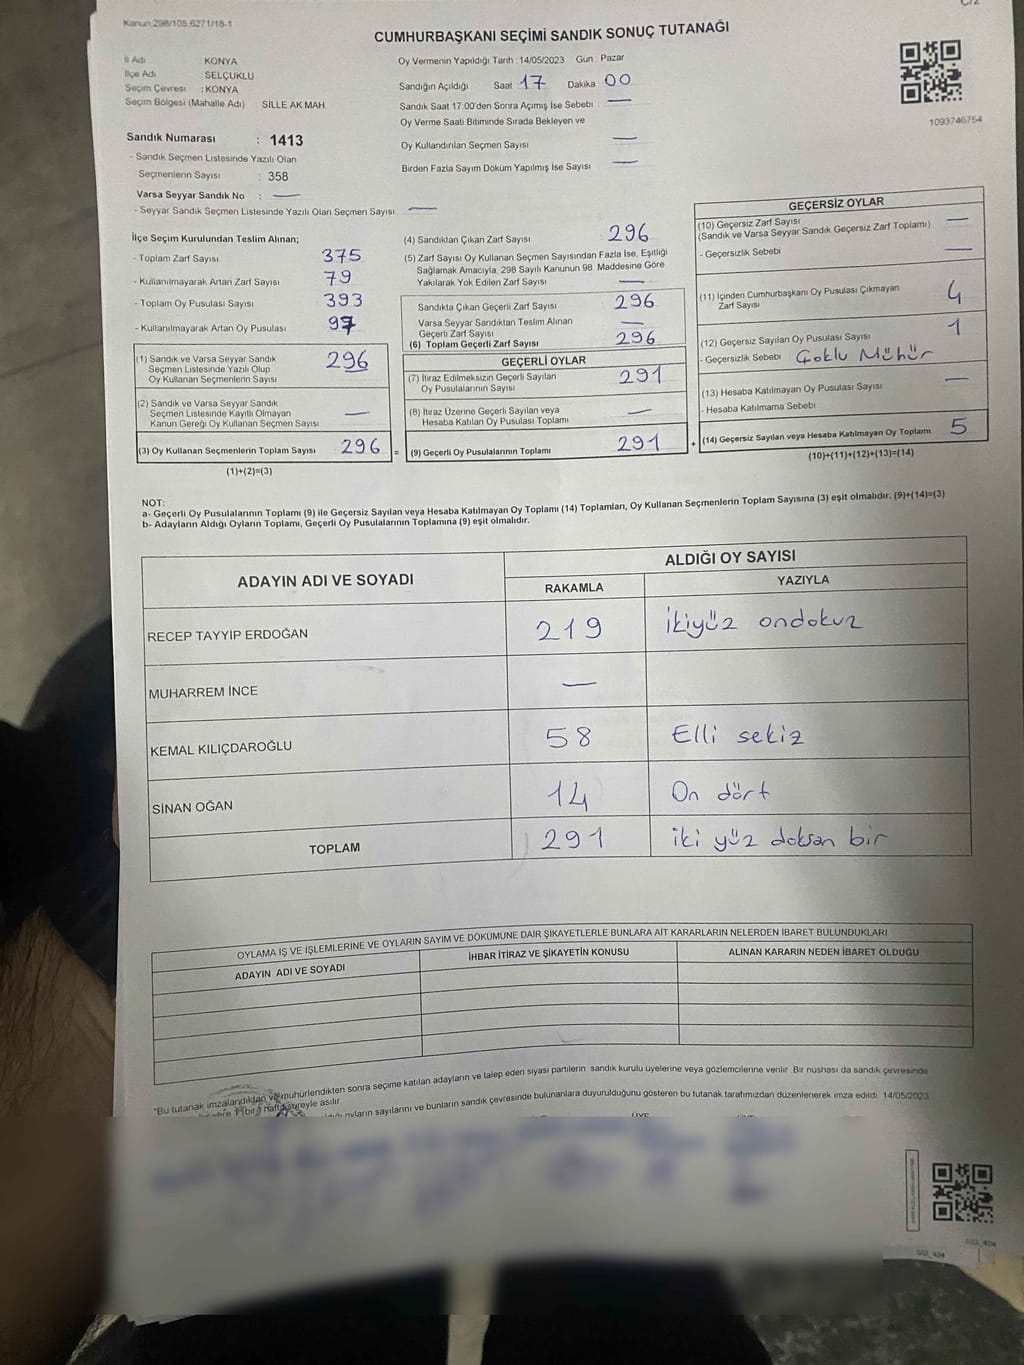 Kanun 298/105,6271/18-1
CUMHURBAŞKANI SEÇİMİ SANDIK SONUÇ TUTANAĞI
İl Adı KONYA
İlçe Adı SELÇUKLU
Seçim Çevresi : KONYA
Seçim Bölgesi (Mahalle Adı) : SİLLE AK MAH
Oy Vermenin Yapıldığı Tarih :14/05/2023 Gün Pazar
Sandığın Açıldığı Saat 17 Dakika 00
Sandık Saat 17:00'den Sonra Açımış İse Sebebi —
Oy Verme Saati Bitiminde Sırada Bekleyen ve
Oy Kullandırılan Seçmen Sayısı —
Birden Fazla Sayım Döküm Yapılmış İse Sayısı —
1093746754
Sandık Numarası : 1413
- Sandık Seçmen Listesinde Yazılı Olan
Seçmenlerin Sayısı : 358
Varsa Seyyar Sandık No : —
- Seyyar Sandık Seçmen Listesinde Yazılı Olan Seçmen Sayısı —
İlçe Seçim Kurulundan Teslim Alınan;
- Toplam Zarf Sayısı 375
- Kullanılmayarak Artan Zarf Sayısı 79
- Toplam Oy Pusulası Sayısı 393
- Kullanılmayarak Artan Oy Pusulası 97
(1) Sandık ve Varsa Seyyar Sandık
Seçmen Listesinde Yazılı Olup
Oy Kullanan Seçmenlerin Sayısı 296
(2) Sandık ve Varsa Seyyar Sandık
Seçmen Listesinde Kayıtlı Olmayan
Kanun Gereği Oy Kullanan Seçmen Sayısı —
(3) Oy Kullanan Seçmenlerin Toplam Sayısı 296
(1)+(2)=(3)
(4) Sandıktan Çıkan Zarf Sayısı 296
(5) Zarf Sayısı Oy Kullanan Seçmen Sayısından Fazla İse, Eşitliği
Sağlamak Amacıyla, 298 Sayılı Kanunun 98. Maddesine Göre
Yakılarak Yok Edilen Zarf Sayısı —
Sandıkta Çıkan Geçerli Zarf Sayısı 296
Varsa Seyyar Sandıktan Teslim Alınan
Geçerli Zarf Sayısı —
(6) Toplam Geçerli Zarf Sayısı 296
GEÇERLİ OYLAR
(7) İtiraz Edilmeksizin Geçerli Sayılan
Oy Pusulalarının Sayısı 291
(8) İtiraz Üzerine Geçerli Sayılan veya
Hesaba Katılan Oy Pusulası Toplamı —
= (9) Geçerli Oy Pusulalarının Toplamı 291 +
GEÇERSİZ OYLAR
(10) Geçersiz Zarf Sayısı —
(Sandık ve Varsa Seyyar Sandık Geçersiz Zarf Toplamı)
- Geçersizlik Sebebi —
(11) İçinden Cumhurbaşkanı Oy Pusulası Çıkmayan
Zarf Sayısı 4
(12) Geçersiz Sayılan Oy Pusulası Sayısı 1
- Geçersizlik Sebebi Çoklu Mühür
(13) Hesaba Katılmayan Oy Pusulası Sayısı —
- Hesaba Katılmama Sebebi
(14) Geçersiz Sayılan veya Hesaba Katılmayan Oy Toplamı 5
(10)+(11)+(12)+(13)=(14)
NOT:
a- Geçerli Oy Pusulalarının Toplamı (9) ile Geçersiz Sayılan veya Hesaba Katılmayan Oy Toplamı (14) Toplamları, Oy Kullanan Seçmenlerin Toplam Sayısına (3) eşit olmalıdır. (9)+(14)=(3)
b- Adayların Aldığı Oyların Toplamı, Geçerli Oy Pusulalarının Toplamına (9) eşit olmalıdır.
ADAYIN ADI VE SOYADI
ALDIĞI OY SAYISI
RAKAMLA YAZIYLA
RECEP TAYYİP ERDOĞAN 219 ikiyüz ondokuz
MUHARREM İNCE —
KEMAL KILIÇDAROĞLU 58 Elli sekiz
SİNAN OĞAN 14 On dört
TOPLAM 291 iki yüz doksan bir
OYLAMA İŞ VE İŞLEMLERİNE VE OYLARIN SAYIM VE DÖKÜMÜNE DAİR ŞİKAYETLERLE BUNLARA AİT KARARLARIN NELERDEN İBARET BULUNDUKLARI
ADAYIN ADI VE SOYADI İHBAR İTİRAZ VE ŞİKAYETİN KONUSU ALINAN KARARIN NEDEN İBARET OLDUĞU
*Bu tutanak imzalandıktan ve mühürlendikten sonra seçime katılan adayların ve talep eden siyasi partilerin sandık kurulu üyelerine veya gözlemcilerine verilir. Bir nüshası da sandık çevresinde
1 (bir) hafta süreyle asılır
oyların sayılarını ve bunların sandık çevresinde bulunanlara duyurulduğunu gösteren bu tutanak tarafımızdan düzenlenerek imza edildi. 14/05/2023
ÜYE